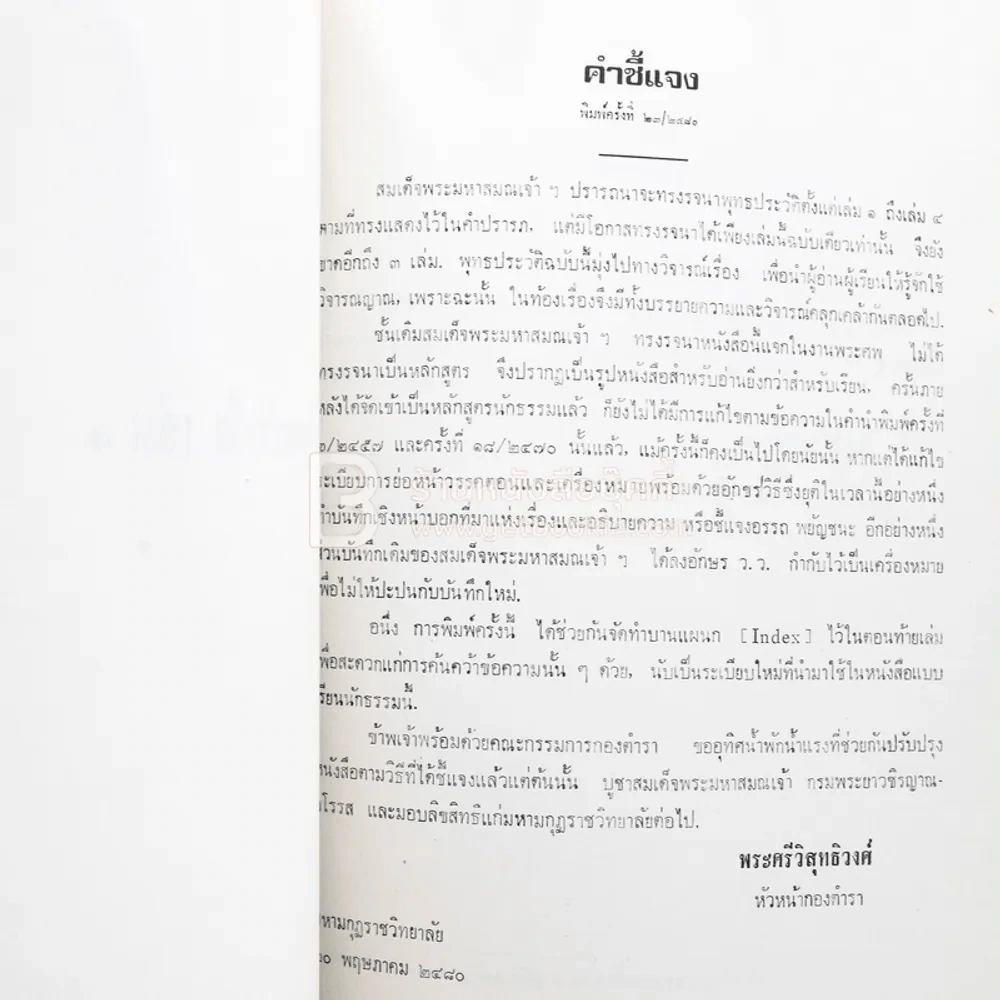 คำชี้แจง
พิมพ์ครั้งที่ ๒๓/๒๔๘๐
สมเด็จพระมหาสมณเจ้า ฯ ปรารถนาจะทรงรจนาพุทธประวัติตั้งแต่เล่ม ๑ ถึงเล่ม ๔
ตามที่ทรงแสดงไว้ในคำปรารภ, แต่มีโอกาสทรงรจนาได้เพียงเล่มนี้ฉบับเดียวเท่านั้น จึงยัง
ขาดอีกถึง ๓ เล่ม. พุทธประวัติฉบับนี้มุ่งไปทางวิจารณ์เรื่อง เพื่อนำผู้อ่านผู้เรียนให้รู้จักใช้
วิจารณญาณ, เพราะฉะนั้น ในท้องเรื่องจึงมีทั้งบรรยายความและวิจารณ์คลุกเคล้ากันตลอดไป.
ชั้นเดิมสมเด็จพระมหาสมณเจ้า ฯ ทรงรจนาหนังสือนี้แจกในงานพระศพ ไม่ได้
ทรงรจนาเป็นหลักสูตร จึงปรากฏเป็นรูปหนังสือสำหรับอ่านยิ่งกว่าสำหรับเรียน, ครั้นภาย
หลังได้จัดเข้าเป็นหลักสูตรนักธรรมแล้ว ก็ยังไม่ได้มีการแก้ไขตามข้อความในคำนำพิมพ์ครั้งที่
/๒๔๕๗ และครั้งที่ ๑๘/๒๔๗๐ นั้นแล้ว, แม้ครั้งนี้ก็คงเป็นไปโดยนัยนั้น หากแต่ได้แก้ไข
ระเบียบการย่อหน้าวรรคตอนและเครื่องหมายพร้อมด้วยอักขรวิธีซึ่งยุติในเวลานี้อย่างหนึ่ง
ทำบันทึกเชิงหน้าบอกที่มาแห่งเรื่องและอธิบายความ หรือชี้แจงอรรถ พยัญชนะ อีกอย่างหนึ่ง
ส่วนบันทึกเดิมของสมเด็จพระมหาสมณเจ้า ฯ ได้ลงอักษร ว.ว. กำกับไว้เป็นเครื่องหมาย
เพื่อไม่ให้ปะปนกับบันทึกใหม่.
อนึ่ง การพิมพ์ครั้งนี้ ได้ช่วยกันจัดทำบานแผนก [Index] ไว้ในตอนท้ายเล่ม
เพื่อสะดวกแก่การค้นคว้าข้อความนั้น ๆ ด้วย, นับเป็นระเบียบใหม่ที่นำมาใช้ในหนังสือแบบ
เรียนนักธรรมนี้.
ข้าพเจ้าพร้อมด้วยคณะกรรมการกองตำรา ขออุทิศน้ำพักน้ำแรงที่ช่วยกันปรับปรุง
หนังสือตามวิธีที่ได้ชี้แจงแล้วแต่ต้นนั้น บูชาสมเด็จพระมหาสมณเจ้า กรมพระยาวชิรญาณ-
วโรรส และมอบลิขสิทธิแก่มหามกุฏราชวิทยาลัยต่อไป.
พระศรีวิสุทธิวงศ์
หัวหน้ากองตำรา
มหามกุฏราชวิทยาลัย
๒๐ พฤษภาคม ๒๔๘๐